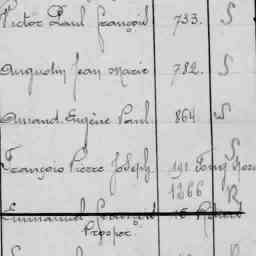 Victor Paul François 733. S
Augustin Jean Marie 782. S
Amand Eugène Paul 864 S
François Pierre Joseph. 191 S
1266 R
Emmanuel
Prosper.